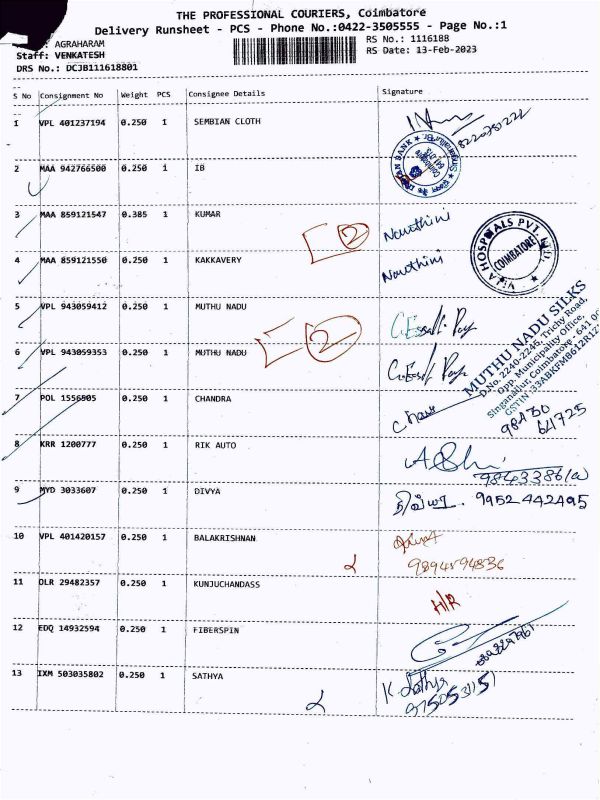 THE PROFESSIONAL COURIERS, Coimbatore
Delivery Runsheet - PCS - Phone No.:0422-3505555 - Page No.:1
: AGRAHARAM
RS No.: 1116188
Staff: VENKATESH
RS Date: 13-Feb-2023
DRS No.: DCJB111618801
S No Consignment No Weight PCS Consignee Details Signature
1 VPL 401237194 0.250 1 SEMBIAN CLOTH
2 MAA 942766500 0.250 1 IB
3 MAA 859121547 0.385 1 KUMAR Nawthini
2
4 MAA 859121550 0.250 1 KAKKAVERY Nawthini
HOSPITALS PVT. LTD.
COIMBATORE
5 VPL 943059412 0.250 1 MUTHU NADU
2
6 VPL 943059353 0.250 1 MUTHU NADU
MUTHU NADU SILKS
D.No. 2240-2245, Trichy Road,
Opp. Municipality Office,
Singanallur, Coimbatore - 641 00
7 POL 1556905 0.250 1 CHANDRA
98430
641725
8 KRR 1200777 0.250 1 RIK AUTO
9 MYD 3033607 0.250 1 DIVYA திவ்யா 9952442495
10 VPL 401420157 0.250 1 BALAKRISHNAN
9894594836
11 DLR 29482357 0.250 1 KUNJUCHANDASS H/R
12 EDQ 14932594 0.250 1 FIBERSPIN
13 IXM 503035802 0.250 1 SATHYA K. Sathya